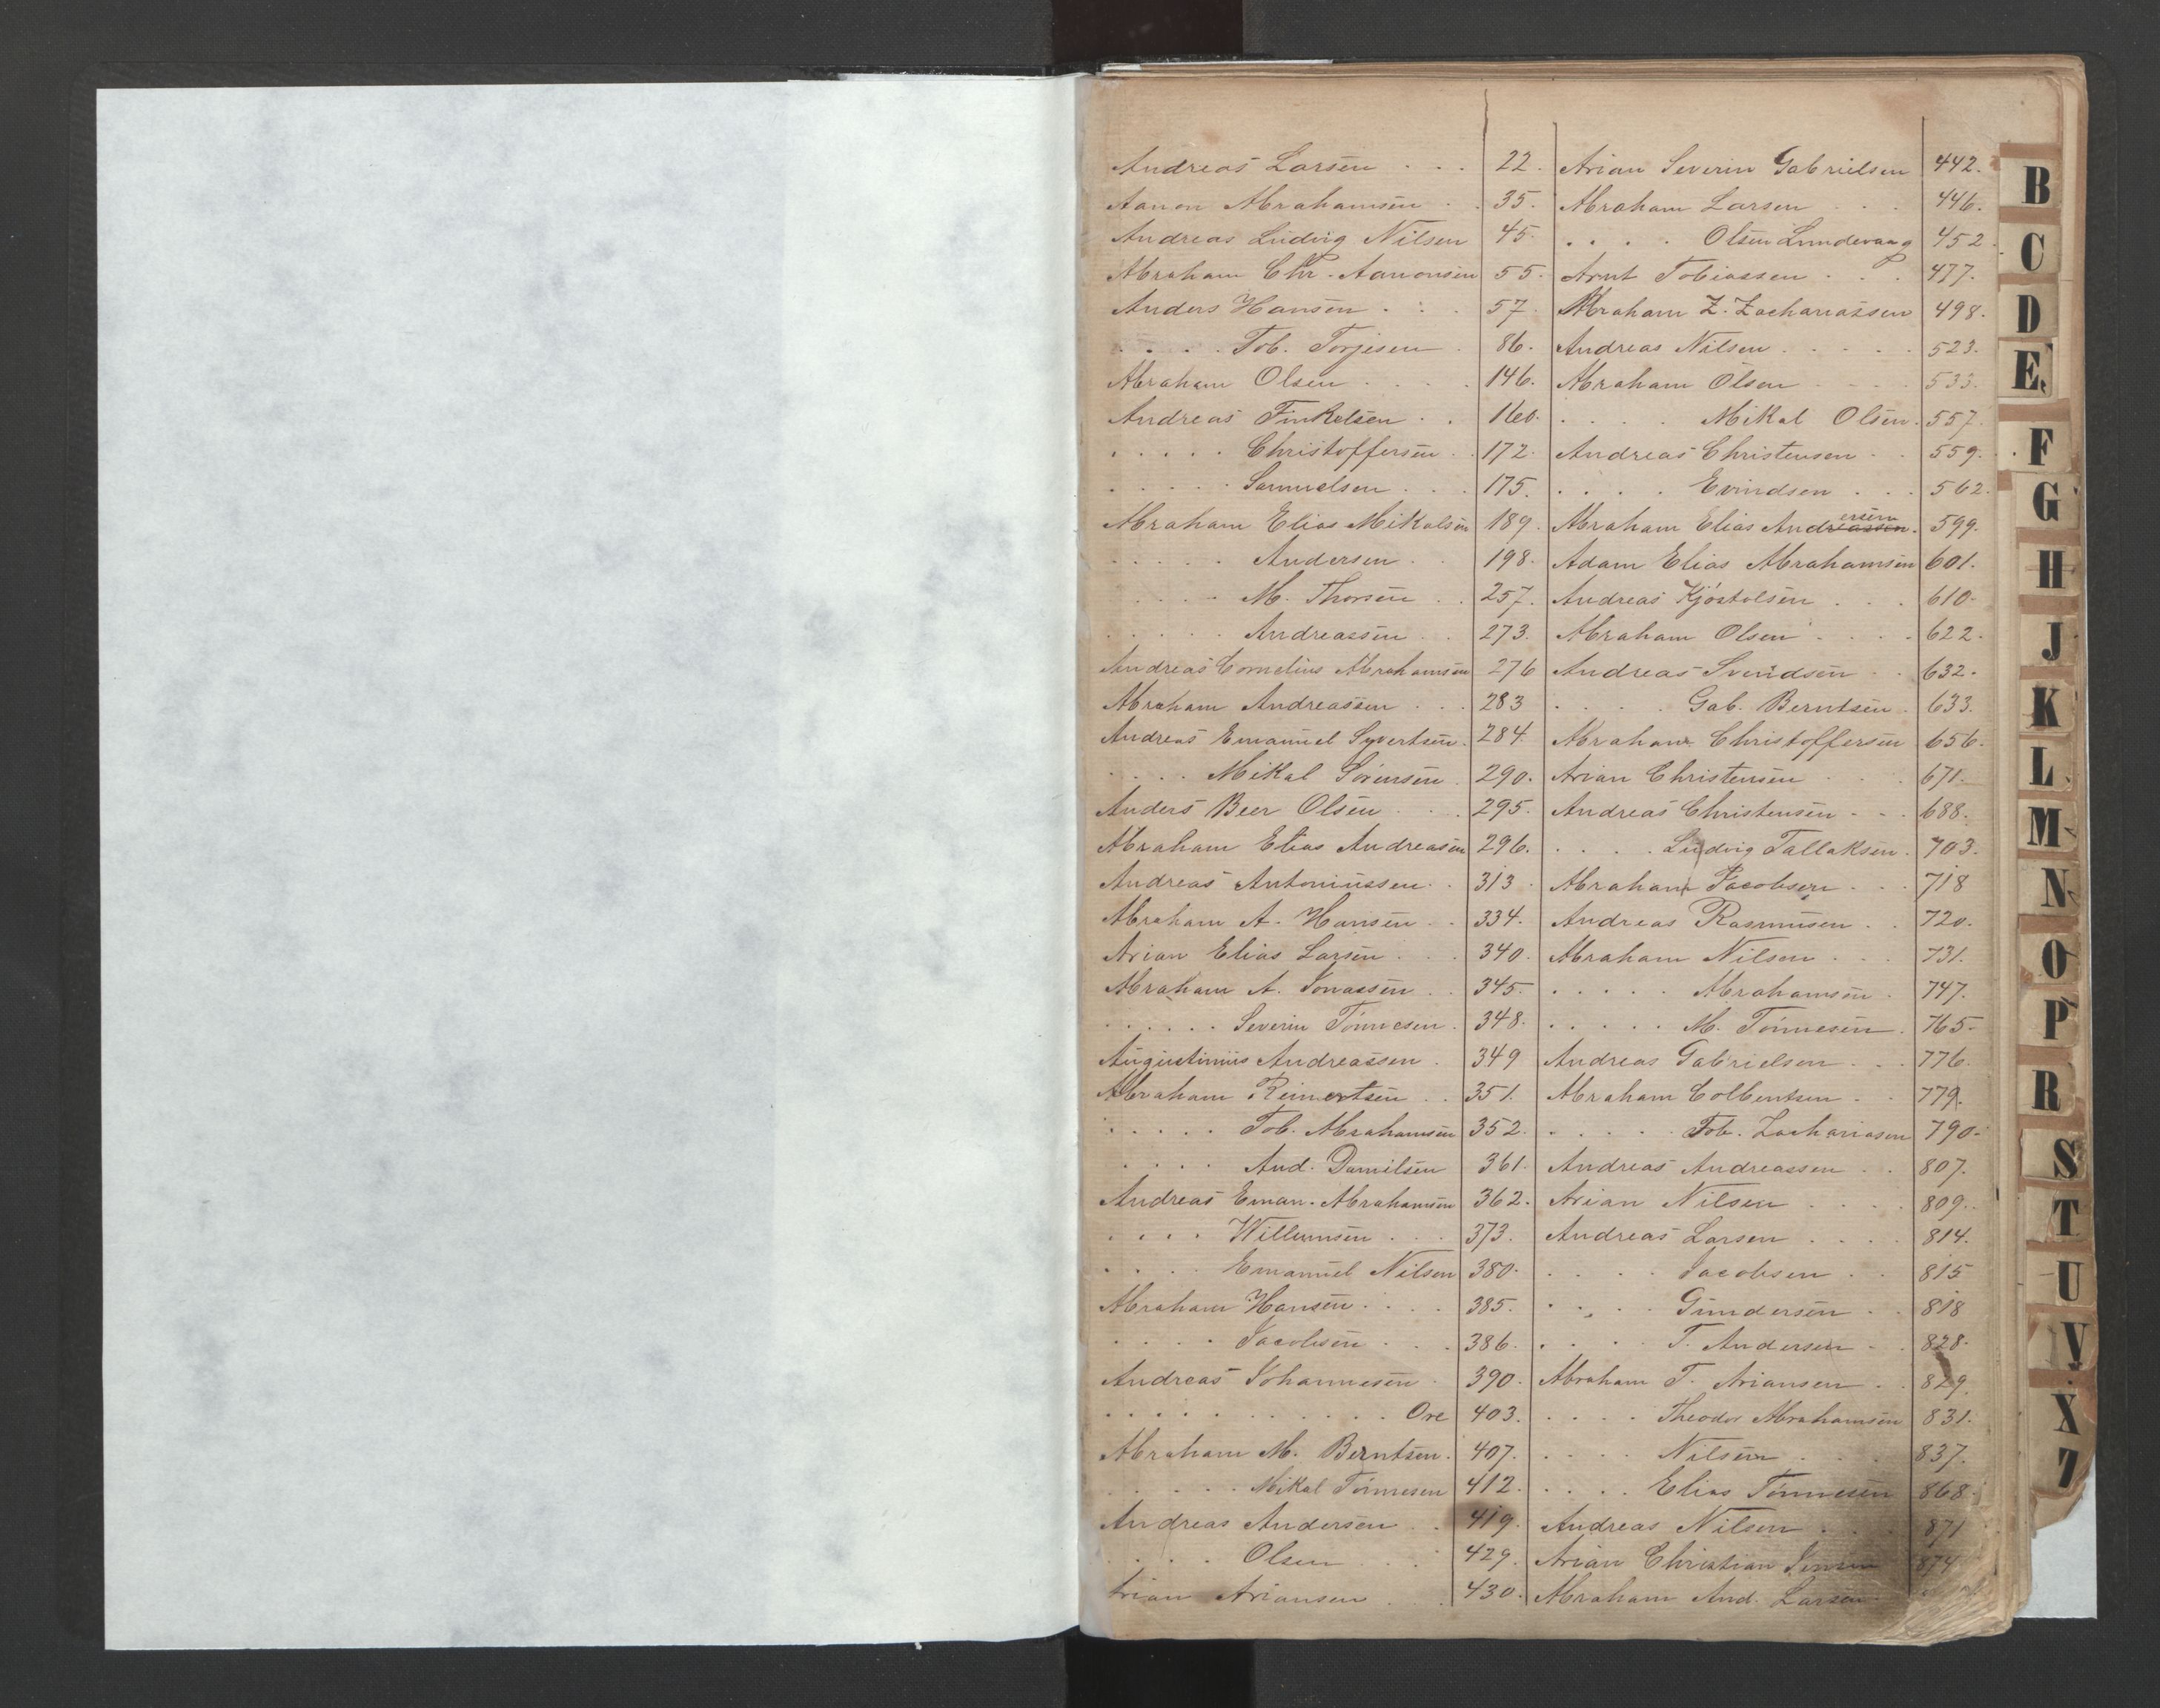 Andreas Larsen . . . 22.
Aanon Abrahamsen . . 35.
Andreas Ludvig Nilsen 45.
Abraham Chr. Aanonsen 55.
Anders Hansen . . . 57.
. . . . Tob. Torjesen . 86.
Abraham Olsen . . . . 146.
Andreas Finkelsen . . 160.
. . . . . Christoffersen . . 172.
. . . . . Samuelsen . . . 175.
Abraham Elias Mikalsen 189.
. . . . . Andersen . . 198.
. . . . M. Thorsen . . 257.
. . . . . Andreassen . . 273.
Andreas Cornelius Abrahamsen 276
Abraham Andreassen . . . 283
Andreas Emanuel Syvertsen. 284.
. . . . Mikal Sörensen . 290.
Anders Beer Olsen . . . 295.
Abraham Elias Andreasen 296.
Andreas Antoniussen . . 313.
Abraham A. Hansen . . 334.
Arian Elias Larsen . . . 340.
Abraham A. Jonassen . . 345.
. . . . . . Severin Tönnesen . 348.
Augustinius Andreassen . 349
Abraham Reinertsen . . 351.
. . . . . Tob. Abrahamsen 352.
. . . . And. Danilsen 361.
Andreas Eman. Abrahamsen 362.
. . . . Willumsen . . . 373.
. . . . Emanuel Nilsen 380.
Abraham Hansen . . . . 385.
. . . . Jacobsen . . . 386.
Andreas Johannesen . 390.
. . . . . . . . . . . Ore 403.
Abraham M. Berntsen . 407.
. . . . . Mikal Tönnesen 412.
Andreas Andersen . . 419.
. . . . Olsen . . . . 429.
Arian Ariansen . . . 430.
Arian Severin Gabrielsen 442.
Abraham Larsen . . . 446.
. . . . Olsen Lundevaag 452.
Arnt Tobiassen . . . 477.
Abraham Z. Zachariassen 498.
Andreas Nilsen . . . . . 523.
Abraham Olsen . . . . 533.
. . . . Mikal Olsen . 557.
Andreas Christensen . . 559.
. . . . Evindsen . . . 562.
Abraham Elias Andreassen ersen. 599.
Adam Elias Abrahamsen 601.
Andreas Kjöstolsen . . . 610.
Abraham Olsen . . . . 622.
Andreas Svendsen . . 632.
. . . . Gab. Berntsen . 633.
Abraham Christoffersen 656.
Arian Christensen . . . 671.
Andreas Christensen . . . 688.
. . . . Ludvig Tallaksen . 703.
Abraham Jacobsen . . . 718
Andreas Rasmusen . . 720.
Abraham Nilsen . . . 731.
. . . . . Abrahamsen . 747.
. . . . . M. Tönnesen . 765.
Andreas Gabrielsen . . . 776.
Abraham Colbentsen . . 779.
. . . . . Tob. Zachariasen 790.
Andreas Andreassen . . 807.
Arian Nilsen . . . . 809.
Andreas Larsen . . . . 814.
. . . . Jacobsen . . 815
. . . . Gundersen . . 818
. . . . T. Andersen . . 828.
Abraham T. Ariansen . . 829.
. . . . Theodor Abrahamsen 831.
. . . . Nilsen . . . 837.
. . . . Elias Tönnesen 868.
Andreas Nilsen . . . 871
Arian Christian 874
Abraham And. Larsen
B
C
D
E
F
G
H
J
K
L
M
N
O
P
R
S
T
U
V
X
Z